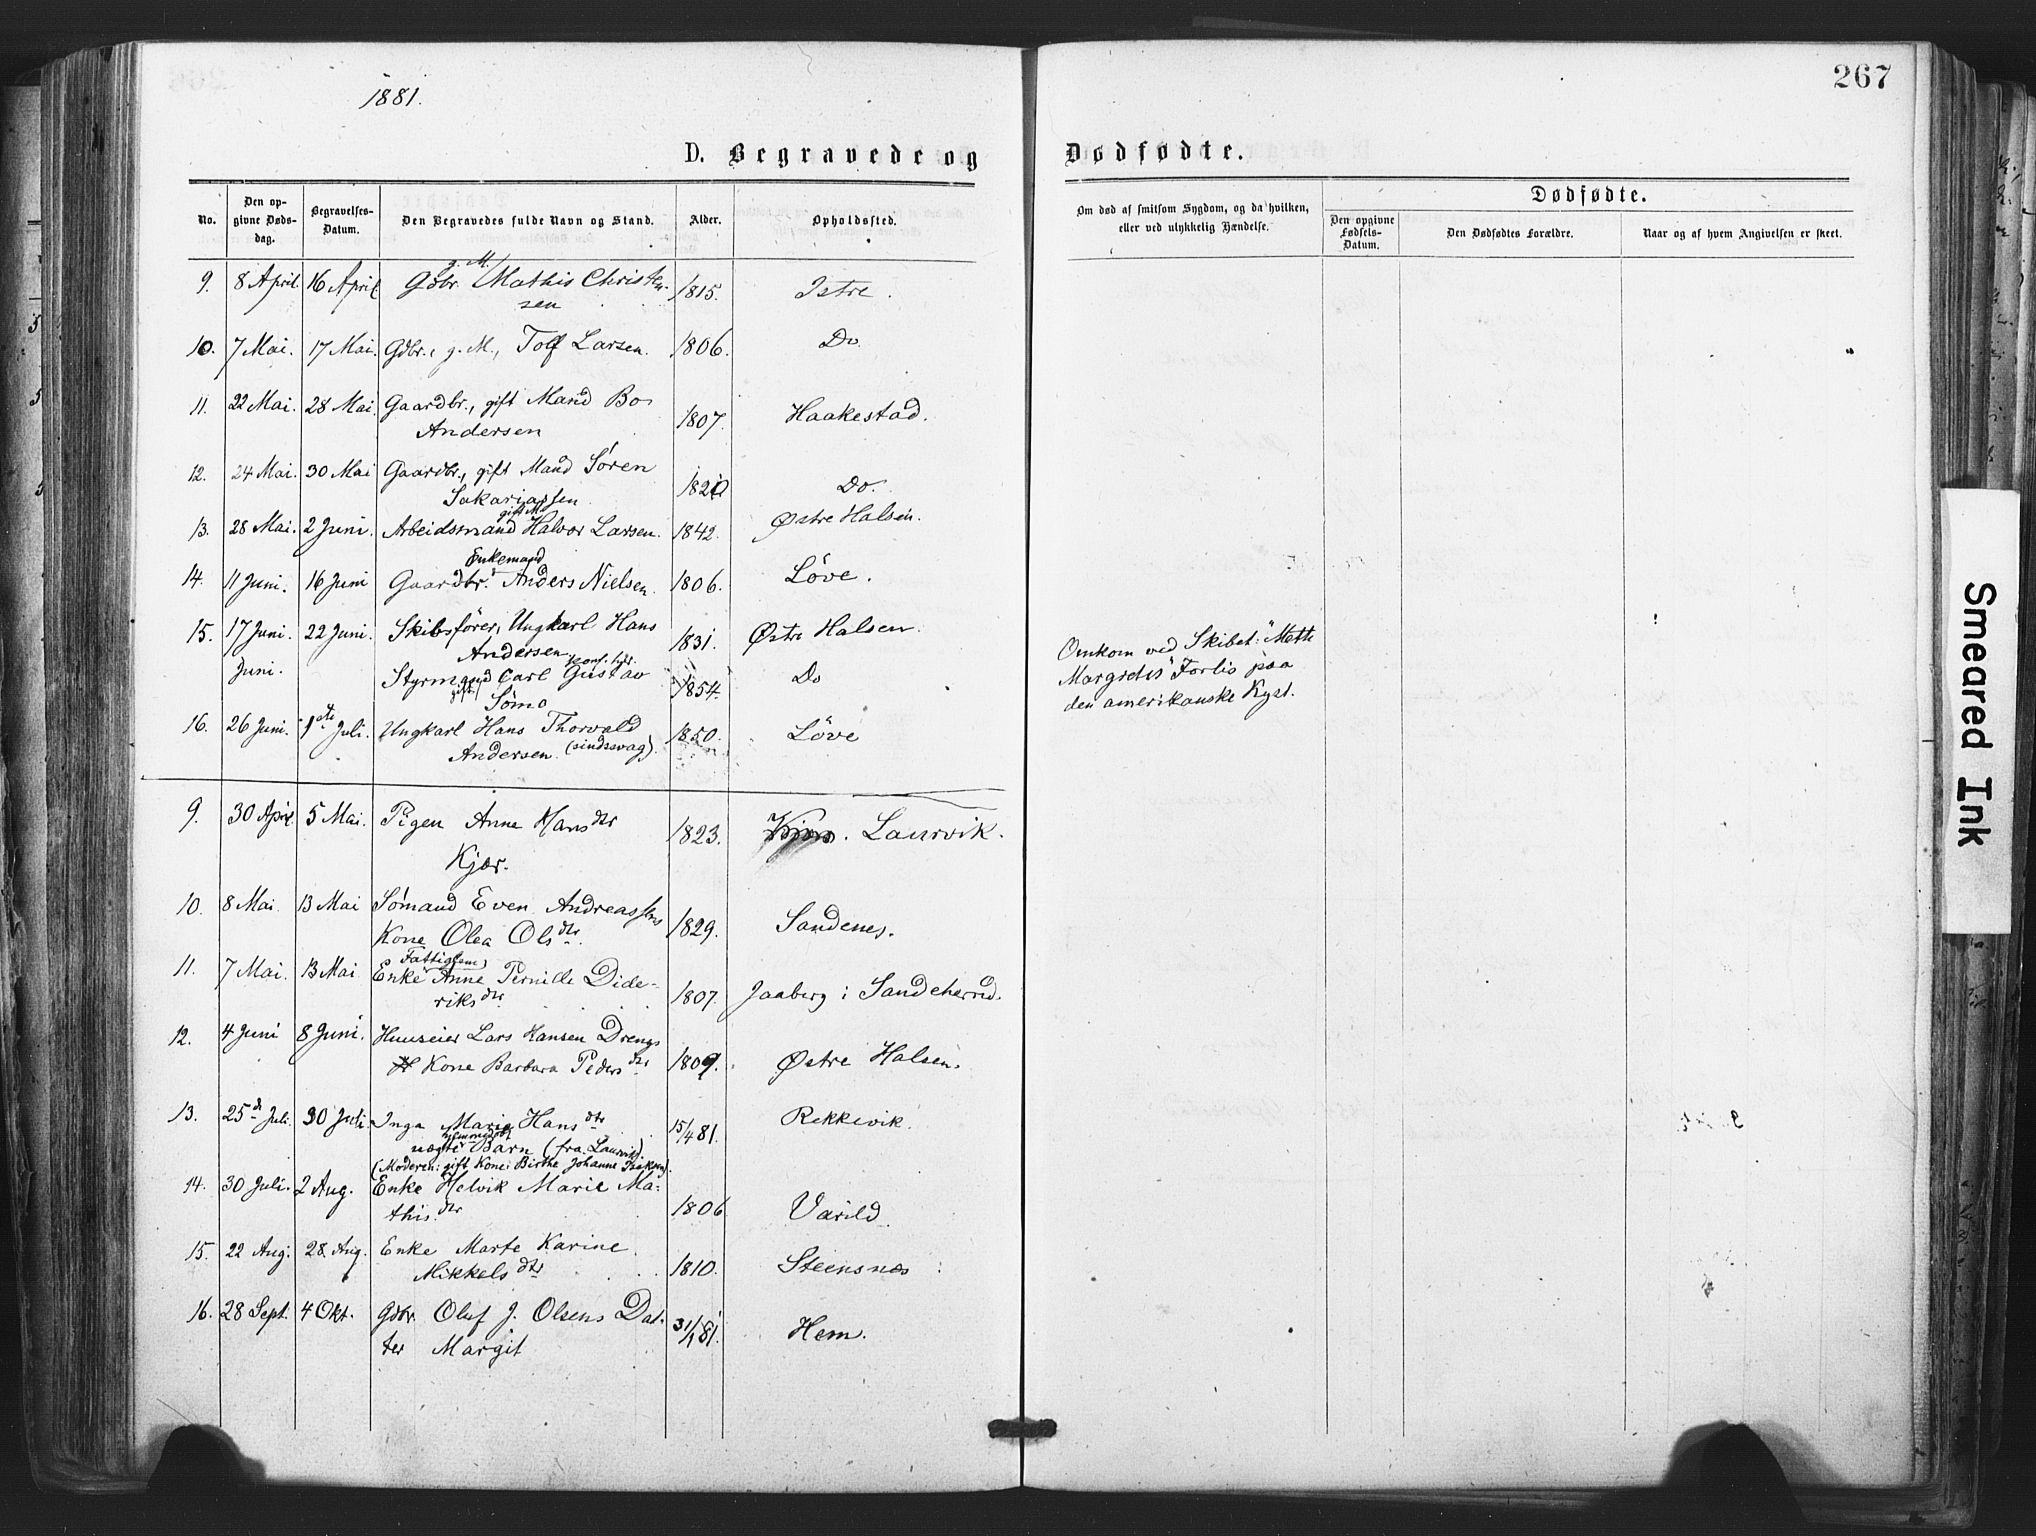 1881.
267
D. Begravede og
Dødfødte.
No.
Den opgivne Dødsdag.
Begravelses-Datum.
Den Begravedes fulde Navn og Stand.
Alder.
Opholdssted.
Om død af smitsom Sygdom, og da hvilken, eller ved ulykkelig Hændelse.
Dødfødte.
Den opgivne Fødsels-Datum.
Den Dødfødtes Forældre.
Naar og af hvem Angivelsen er skeet.
9. 8 April 16 April Gdbr. g. M. Mathis Christen-
sen 1815. Istre.
10. 7 Mai. 17 Mai. Gdbr., g. M., Tolf Larsen. 1806. Do.
11. 22 Mai. 28 Mai. Gaardbr., gift Mand Bo
Andersen 1807. Haakestad.
12. 24 Mai. 30 Mai Gaardbr., gift Mand Sören
Sakariassen 1820 Do.
13. 28 Mai. 2 Juni. Arbeidsmand gift M. Halvor Larsen. 1842. Østre Halsen.
14. 11 Juni. 16 Juni Gaardbr. Enkemand Anders Nielsen. 1806. Löve.
15. 17 Juni. 22 Juni. Skibsförer, Ungkarl Hans
Andersen. 1831. Østre Halsen.
Juni. Styrmand gift Carl Gustav
Sømo 1854. Do
Omkom ved Skibet: "Mette
Margretes" Forlis paa
den amerikanske Kyst.
16. 26 Juni. 1ste Juli. Ungkarl Hans Thorvald
Andersen (sindssvag). 1850. Löve
9. 30 April 5 Mai. Pigen Anne Hansdtr
Kjær. 1823. Laurvik.
10. 8 Mai. 13 Mai Sømand Even Andreassens
Kone Olea Olsdtr. 1829. Sandenes.
11. 7 Mai. 13 Mai Fattiglem
Enke Anne Pernille Dide-
riksdtr 1807. Jaaberg i Sandeherred.
12. 4 Juni 8 Juni. Huuseier Lars Hansen Drengs
Kone Barbara Pedersdtr 1809. Østre Halsen.
13. 25de Juli. 30 Juli. Inga Marie Hansdtr 15/4 81. Rekkevik.
uægte Barn (fra Laurvik).
(Moderen: gift Kone: Birthe Johanne Isaksen).
14. 30 Juli. 2 Aug. Enke Helvik Marie Ma-
this.dtr 1806 Varild.
15. 22 Aug. 28. Aug. Enke Marte Karine
Mikkelsdtr 1810. Steensnæs
16. 28 Sept. 4 Okt. Gdbr. Oluf J. Olsens Dat-
ter Margit 31/1 81. Hem.
Smeared Ink